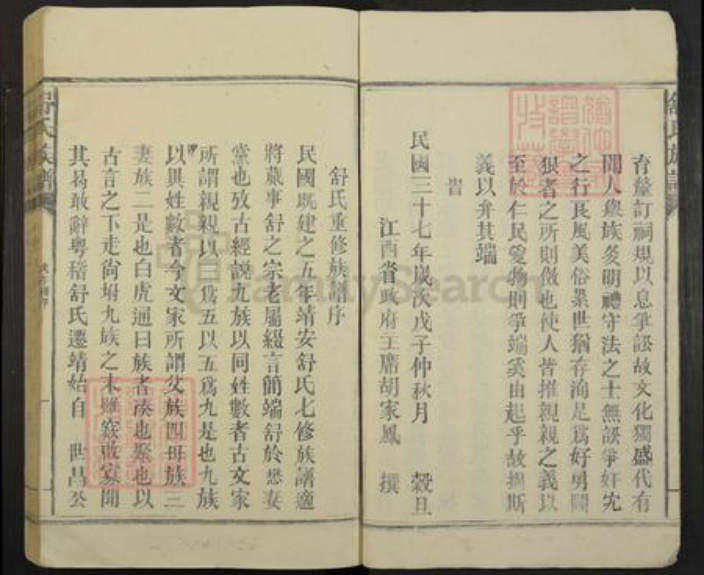 育釐訂祠規以息爭訟故文化獨盛代有
聞人與族多明禮守法之士無訟爭奸宄
之行良風美俗累世猶存洵是為好勇鬭
狠者之所則傚也使人皆推親親之義以
至於仁民愛物則爭端奚由起乎故揭斯
義以弁其端
旹
民國三十七年歲次戊子仲秋月 穀旦
江西省政府主席胡家鳳 撰
舒氏重修族譜序
民國既建之五年靖安舒氏七修族譜適
將蕆事舒之宗老屬綴言簡端舒於悉妻
黨也攷古經說九族以同姓數者古文家
所謂親親以三為五以五為九是也九族
以異姓數者今文家所謂父族四母族三
妻族二是也白虎通曰族者湊也聚也以
古言之下走尚坿九族之末雖竅啟寡聞
其曷敢辭粵稽舒氏遷靖始自 世昌公
舒氏族譜
FamilySearch